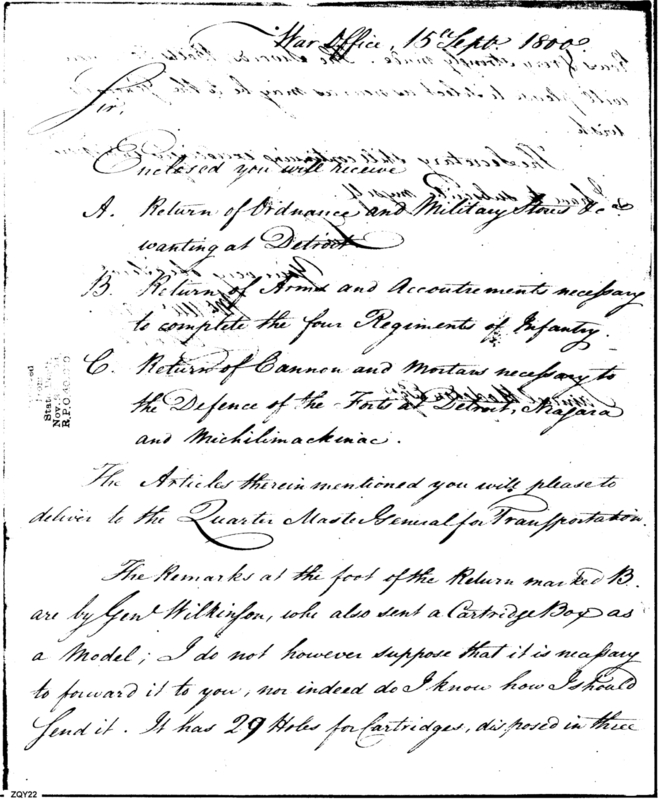 War Office, 15th Septr. 1800.
Sir,
Enclosed you will receive
A. Return of Ordnance and Military Stores &ca
wanting at Detroit
B. Return of Arms and Accoutrements necessary
to complete the four Regiments of Infantry.
C. Return of Cannon and Mortars necessary to
the Defence of the Forts at Detroit, Niagara
and Michilimackinac.
The Articles therein mentioned you will please to
deliver to the Quarter Master General for Transportation.
The Remarks at the foot of the Return marked B.
are by Genl Wilkinson, who also sent a Cartridge Box as
a Model; I do not however suppose that it is necessary
to forward it to you, nor indeed do I know how I should
Send it. It has 29 Holes for Cartridges, disposed in three
ZQY22